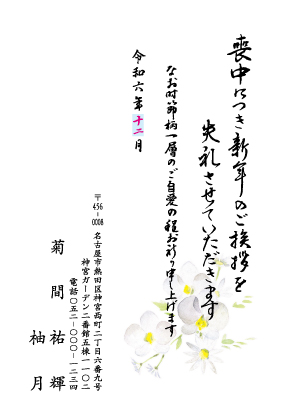 喪中につき新年のご挨拶を
失礼させていただきます
なお時節柄一層のご自愛の程お祈り申し上げます
令和六年十二月
〒456-0008
名古屋市熱田区神宮西町二丁目六番九号
神宮ガーデン二番館五棟一一〇二
電話〇五二-〇〇〇-一二三四
菊間祐輝
柚月